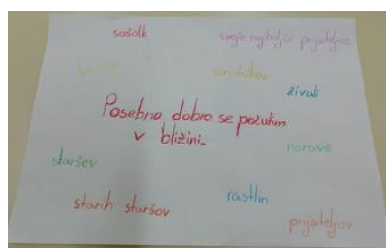 sošolk
svoje najboljše prijateljice
sorodnikov
živali
Posebno dobro se počutim
v bližini
narave
staršev
rastlin
starih staršov
prijateljov